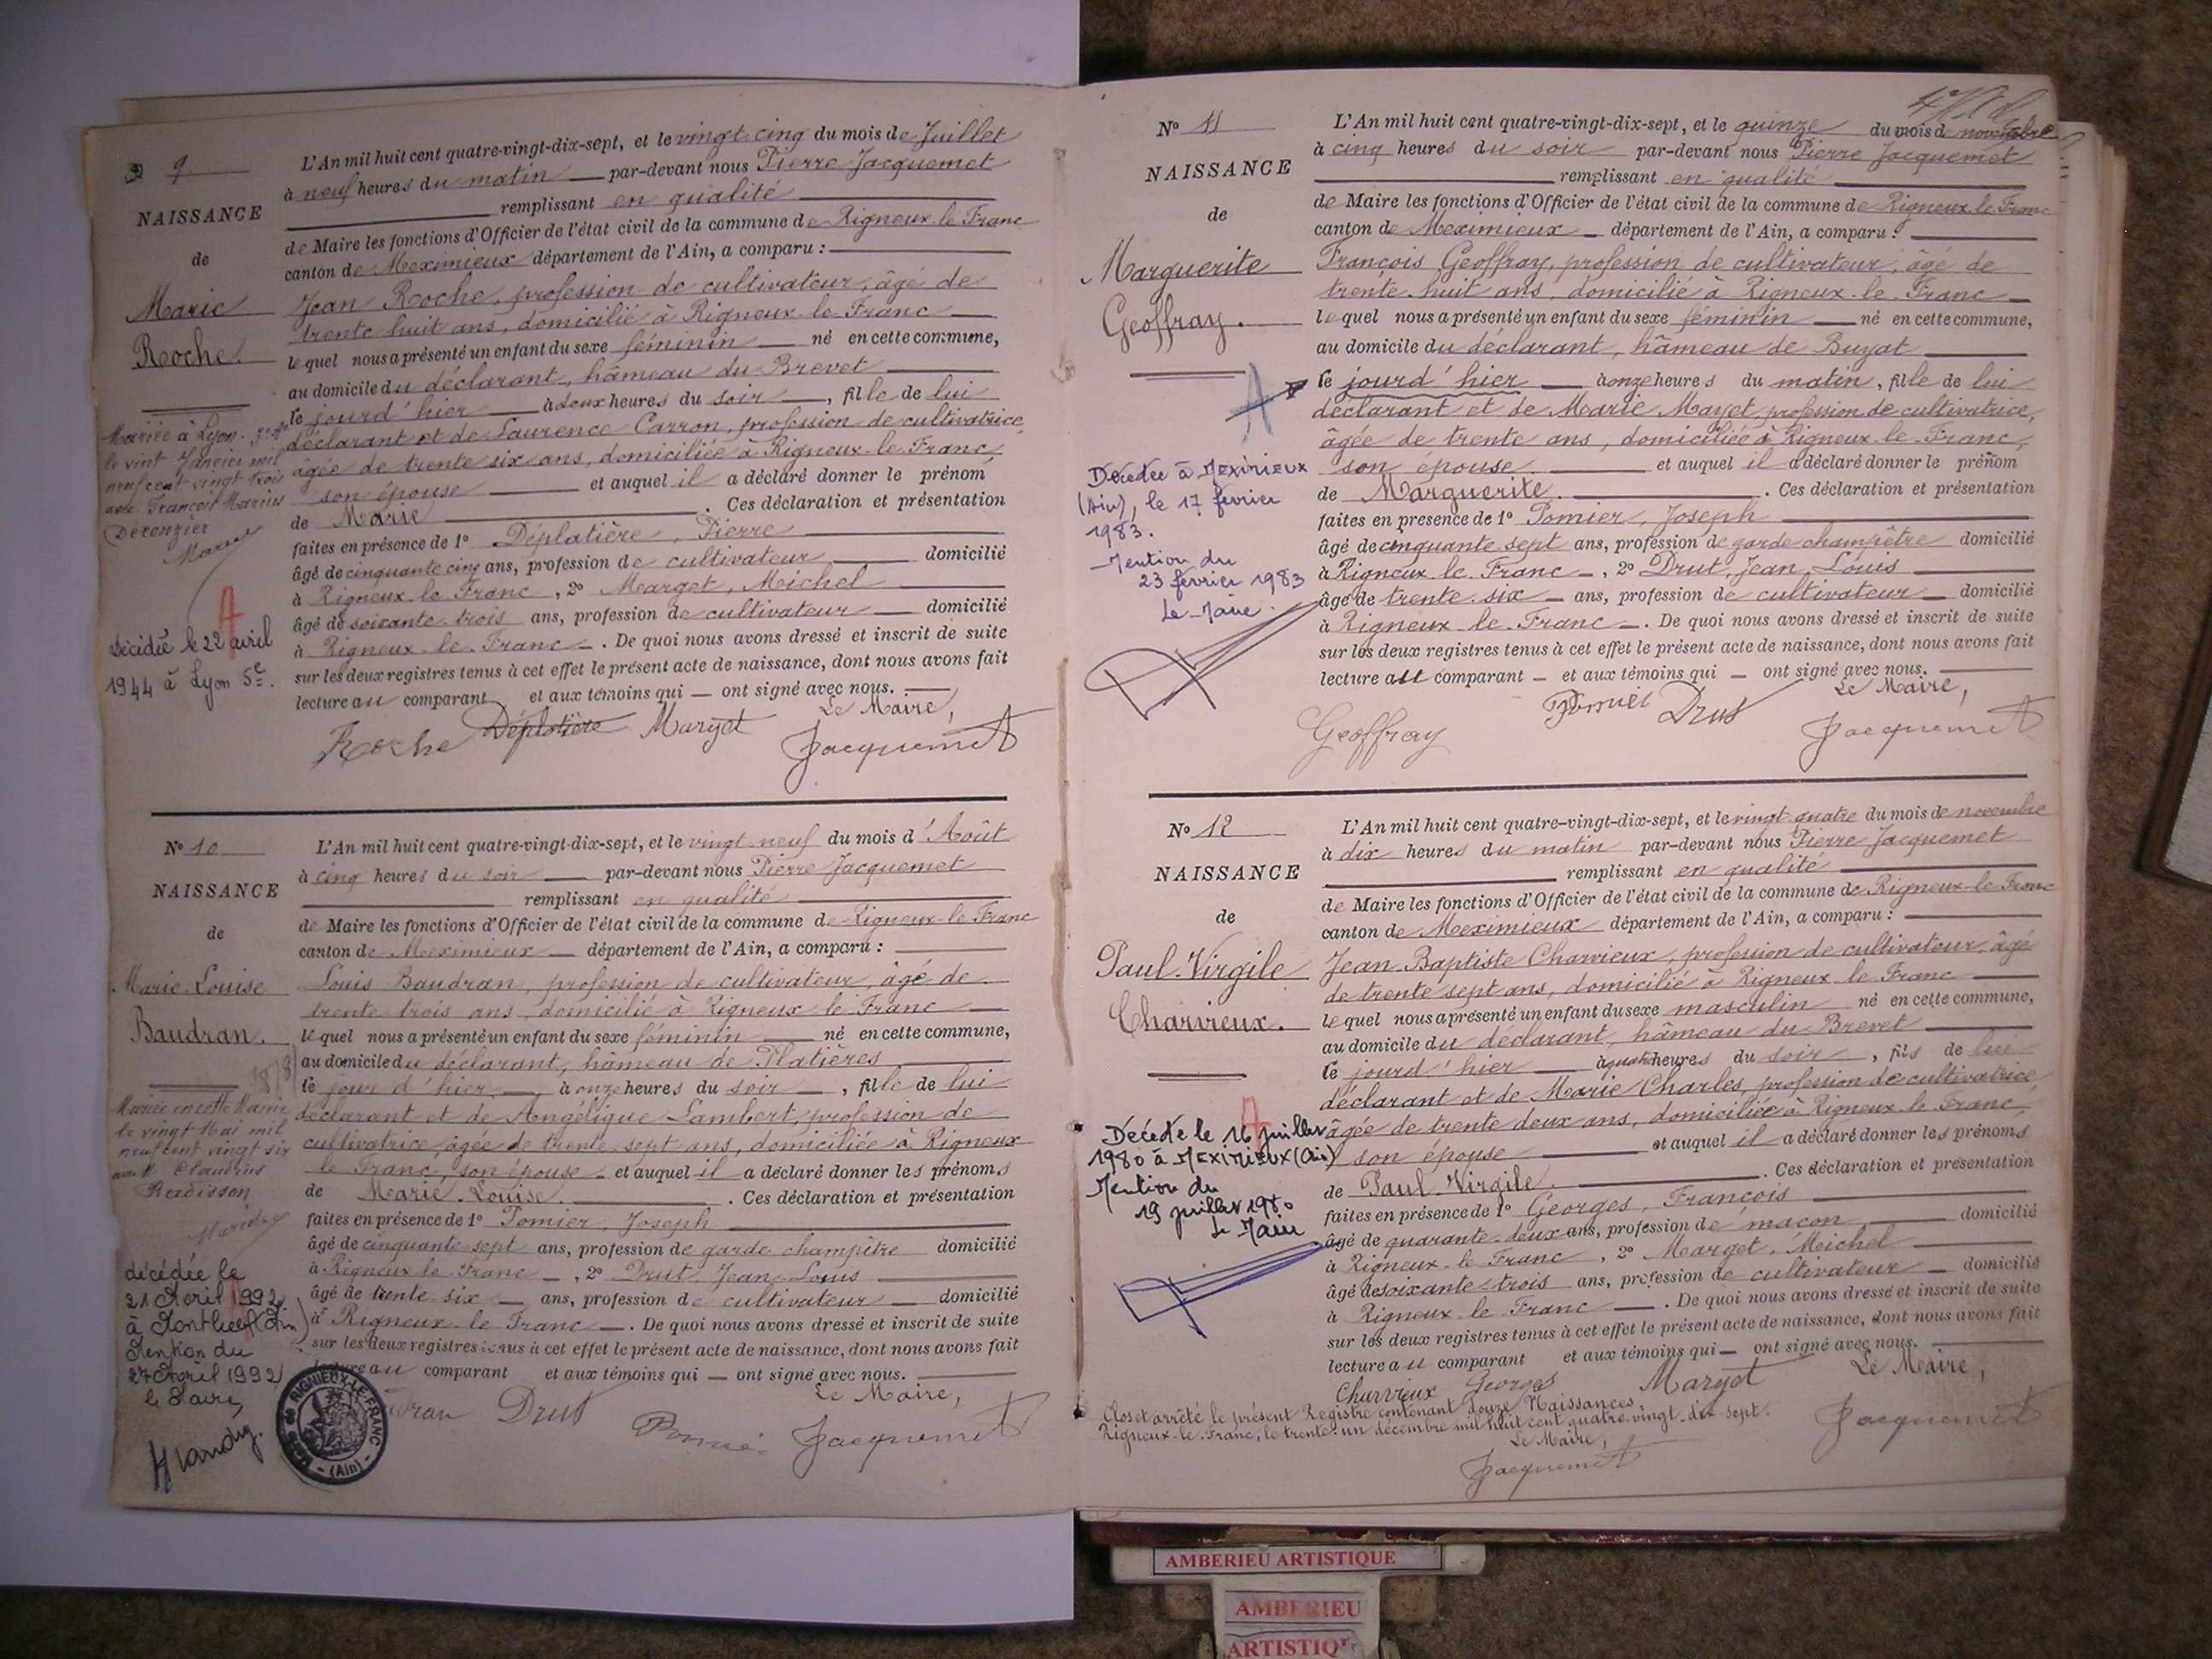 9
NAISSANCE
de
Marie
Roche.
Mariée à Lyon
le vint Janvier mil
neuf cent vingt trois
avec François Marius
Derenzier
décédée le 22 avril
1944 à Lyon 5e.
L'An mil huit cent quatre-vingt-dix-sept, et le vingt-cinq du mois de Juillet
à neuf heures du matin par-devant nous Pierre Jacquemet
remplissant en qualité
de Maire les fonctions d'Officier de l'état civil de la commune de Rigneux-le-Franc
canton de Meximieux département de l'Ain, a comparu :
Jean Roche, profession de cultivateur, âgé de
trente huit ans, domicilié à Rigneux-le-Franc
lequel nous a présenté un enfant du sexe féminin né en cette commune,
au domicile du déclarant, hâmeau du Brevet
le jourd'hier à deux heures du soir, fille de lui
déclarant et de Laurence Carron, profession de cultivatrice,
âgée de trente six ans, domiciliée à Rigneux-le-Franc,
son épouse et auquel il a déclaré donner le prénom
de Marie. Ces déclaration et présentation
faites en présence de 1° Déplatière, Pierre
âgé de cinquante cinq ans, profession de cultivateur domicilié
à Rigneux-le-Franc, 2° Marget, Michel
âgé de soixante-trois ans, profession de cultivateur domicilié
à Rigneux-le-Franc. De quoi nous avons dressé et inscrit de suite
sur les deux registres tenus à cet effet le présent acte de naissance, dont nous avons fait
lecture au comparant et aux témoins qui ont signé avec nous.
Le Maire,
Roche Déplatière Marget Jacquemet
N° 10
NAISSANCE
de
Marie-Louise
Baudran.
Mariée en cette Mairie
le vingt Mai mil
neuf cent vingt six
avec Claudius
Radisson
décédée le
21 Avril 1992
à Montluel (Ain)
Mention du
27 Avril 1992
le Maire,
MAIRIE de RIGNIEUX-LE-FRANC
(Ain)
L'An mil huit cent quatre-vingt-dix-sept, et le vingt neuf du mois d'Août
à cinq heures du soir par-devant nous Pierre Jacquemet
remplissant en qualité
de Maire les fonctions d'Officier de l'état civil de la commune de Rigneux-le-Franc
canton de Meximieux département de l'Ain, a comparu :
Louis Baudran, profession de cultivateur, âgé de
trente trois ans, domicilié à Rigneux-le-Franc
lequel nous a présenté un enfant du sexe féminin né en cette commune,
au domicile du déclarant, hâmeau de Platières
le jour d'hier à onze heures du soir, fille de lui
déclarant et de Angélique Lambert, profession de
cultivatrice, âgée de trente-sept ans, domiciliée à Rigneux
le Franc, son épouse et auquel il a déclaré donner les prénoms
de Marie-Louise. Ces déclaration et présentation
faites en présence de 1° Pomier, Joseph
âgé de cinquante sept ans, profession de garde champêtre domicilié
à Rigneux le Franc, 2° Drut, Jean-Louis
âgé de trente six ans, profession de cultivateur domicilié
à Rigneux-le-Franc. De quoi nous avons dressé et inscrit de suite
sur les deux registres tenus à cet effet le présent acte de naissance, dont nous avons fait
lecture au comparant et aux témoins qui ont signé avec nous.
Le Maire,
Drut Pomier Jacquemet
N° 11
NAISSANCE
de
Marguerite
Geoffray.
A
Décédée à MEXIMIEUX
(Ain), le 17 février
1983.
Mention du
23 février 1983
Le Maire.
L'An mil huit cent quatre-vingt-dix-sept, et le quinze du mois de novembre
à cinq heures du soir par-devant nous Pierre Jacquemet
remplissant en qualité
de Maire les fonctions d'Officier de l'état civil de la commune de Rigneux-le-Franc
canton de Meximieux département de l'Ain, a comparu :
François Geoffray, profession de cultivateur, âgé de
trente-huit ans, domicilié à Rigneux-le-Franc
lequel nous a présenté un enfant du sexe féminin né en cette commune,
au domicile du déclarant, hâmeau de Buyat
le jourd'hier à onze heures du matin, fille de lui
déclarant et de Marie Marget, profession de cultivatrice,
âgée de trente ans, domiciliée à Rigneux-le-Franc,
son épouse et auquel il a déclaré donner le prénom
de Marguerite. Ces déclaration et présentation
faites en présence de 1° Pomier, Joseph
âgé de cinquante sept ans, profession de garde champêtre domicilié
à Rigneux le Franc, 2° Drut, Jean Louis
âgé de trente-six ans, profession de cultivateur domicilié
à Rigneux-le-Franc. De quoi nous avons dressé et inscrit de suite
sur les deux registres tenus à cet effet le présent acte de naissance, dont nous avons fait
lecture au comparant et aux témoins qui ont signé avec nous.
Le Maire,
Geoffray Pomier Drut Jacquemet
N° 12
NAISSANCE
de
Paul-Virgile
Charvieux.
Décédé le 16 juillet
1980 à MEXIMIEUX (Ain)
Mention du
19 juillet 1980
Le Maire
L'An mil huit cent quatre-vingt-dix-sept, et le vingt-quatre du mois de novembre
à dix heures du matin par-devant nous Pierre Jacquemet
remplissant en qualité
de Maire les fonctions d'Officier de l'état civil de la commune de Rigneux-le-Franc
canton de Meximieux département de l'Ain, a comparu :
Jean-Baptiste Charvieux, profession de cultivateur, âgé
de trente sept ans, domicilié à Rigneux-le-Franc
lequel nous a présenté un enfant du sexe masculin né en cette commune,
au domicile du déclarant, hâmeau du Brevet
le jourd'hier à quatre heures du soir, fils de lui
déclarant et de Marie Charles, profession de cultivatrice,
âgée de trente deux ans, domiciliée à Rigneux-le-Franc,
son épouse et auquel il a déclaré donner les prénoms
de Paul-Virgile. Ces déclaration et présentation
faites en présence de 1° Georges, François
âgé de quarante-deux ans, profession de maçon domicilié
à Rigneux-le-Franc, 2° Marget, Michel
âgé de soixante-trois ans, profession de cultivateur domicilié
à Rigneux-le-Franc. De quoi nous avons dressé et inscrit de suite
sur les deux registres tenus à cet effet le présent acte de naissance, dont nous avons fait
lecture au comparant et aux témoins qui ont signé avec nous.
Le Maire,
Charvieux Georges Marget Jacquemet
Clos et arrêté le présent Registre contenant douze Naissances.
Rigneux-le-Franc, le trente-un décembre mil huit cent quatre-vingt-dix-sept.
Le Maire,
Jacquemet
AMBERIEU ARTISTIQUE
AMBERIEU
ARTISTIQ